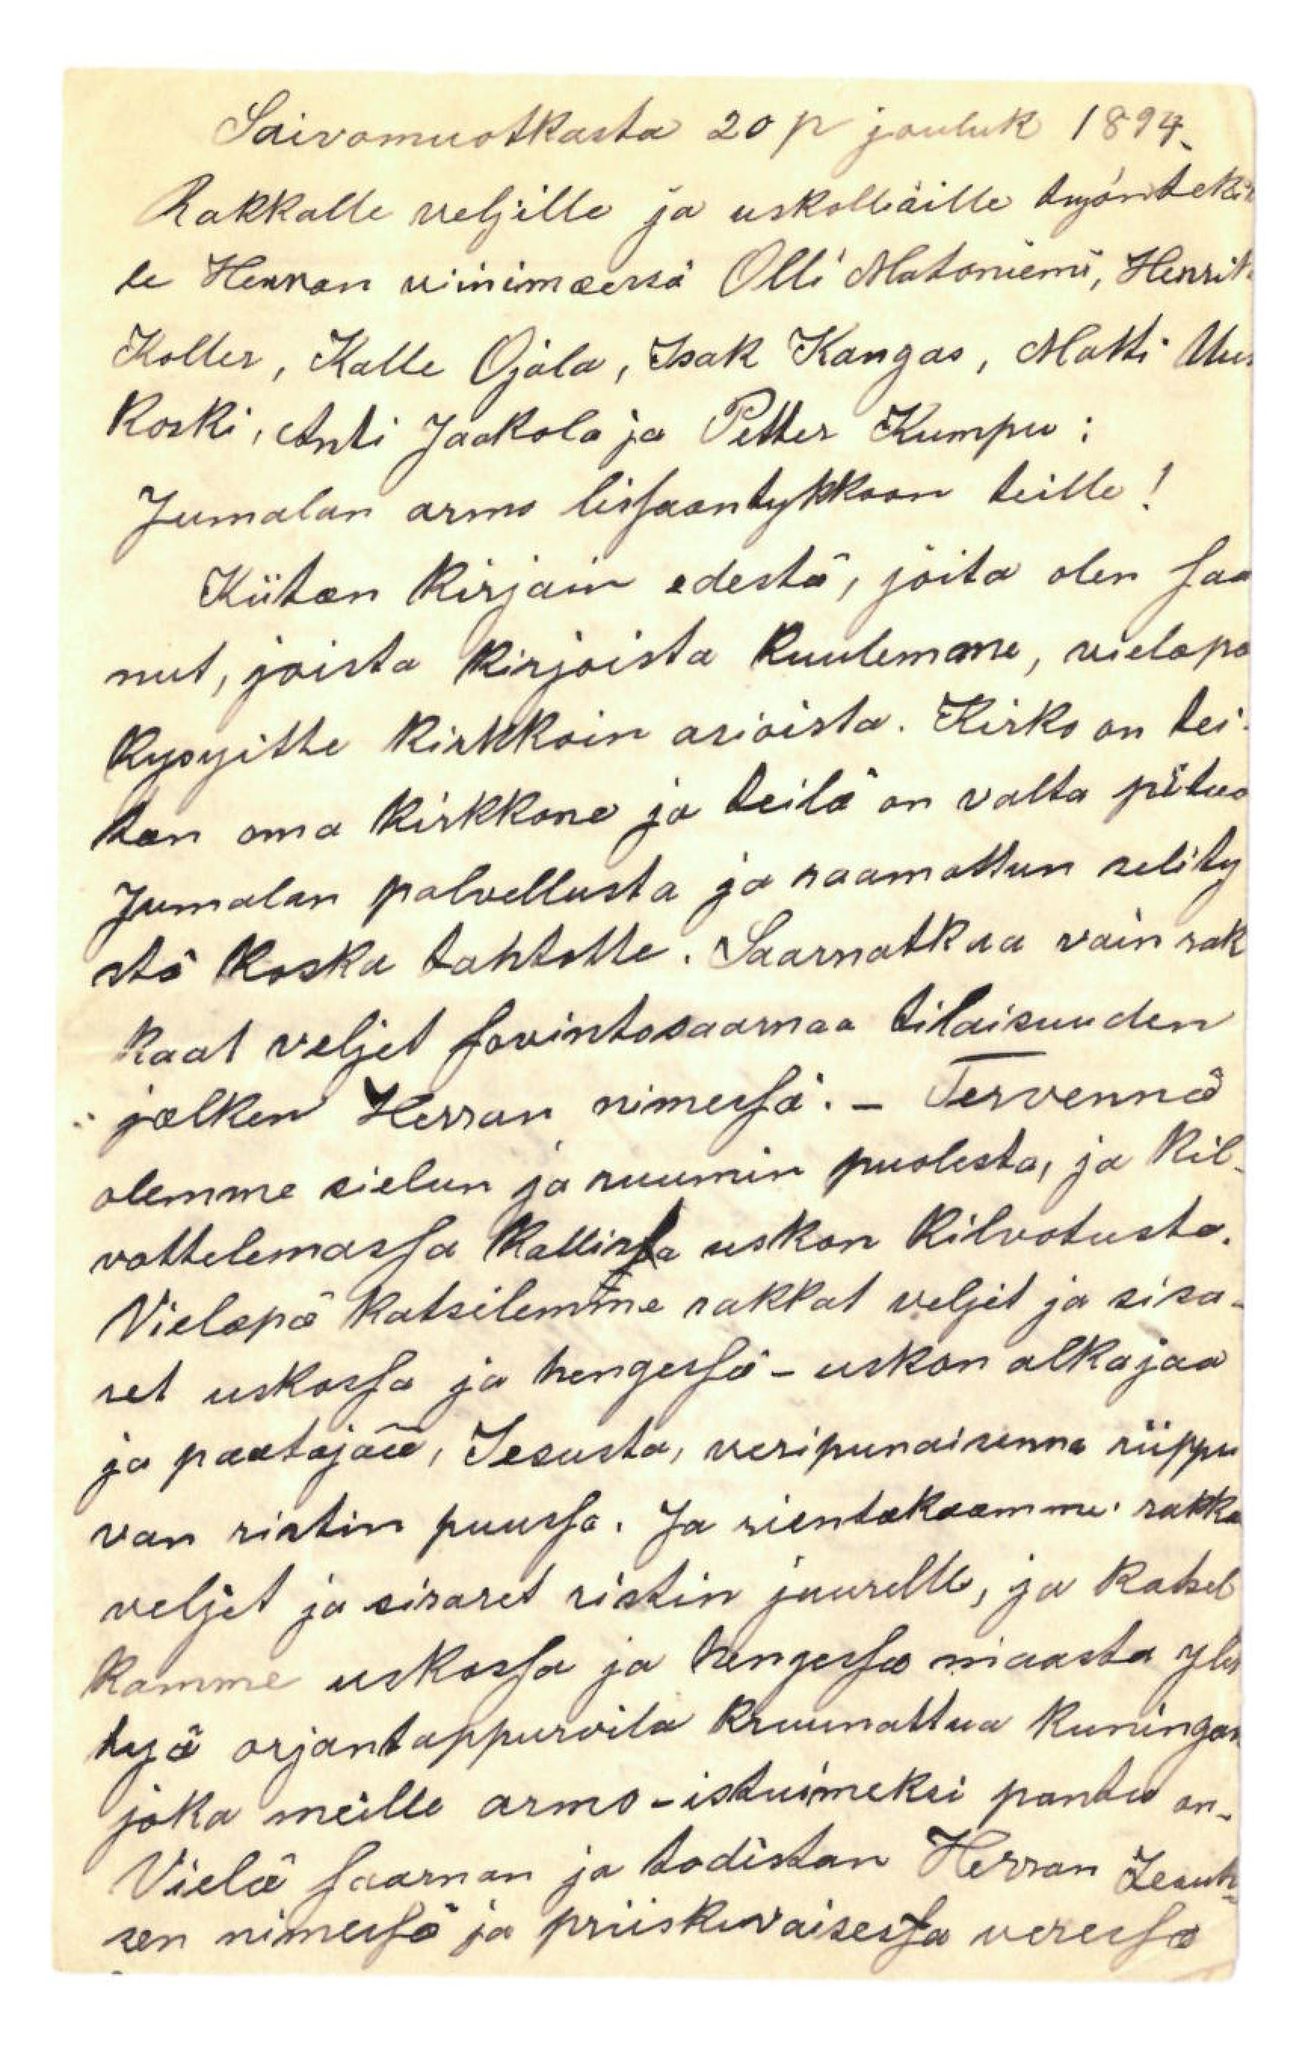 Saivomuotkasta 20 p jouluk 1894.
Rakkalle veljille ja uskolläille työnteki
le Herran viinimäessä Olli Matoniemi, Henrik
Koller, Kalle Ojala, Isak Kangas, Matti Uus
koski, Anti Jaakola ja Petter Kumpu:
Jumalan armo lissääntykkoon teille!
Kiitän kirjain edestä, joita olen saa
nut, joista kirjoista kuulemme, vieläpä
kysyitte kirkkoin asioista. Kirko on tei
tän oma kirkkone ja teilä on valta pitää
Jumalan palvellusta ja raamattun selity
stä koska tahtotte. Saarnatkaa vain rak
kaat veljet sovintosaarnaa tilaisuuden
jälken Herran nimessä. - Tervennä
olemme sielun ja ruumin puolesta, ja kil-
vottelemassa kallista uskon kilvotusta.
Vieläpä katselemme rakkat veljet ja sisa-
ret uskossa ja hengessä - uskon alkajaa
ja päätäjää, Jesusta, veripunaisenna riippu
van ristin puussa. Ja rientäkäämme rakka
veljet ja sisaret ristin juurelle, ja katsel
kamme uskossa ja hengessä maasta yle
tyä orjantappuroila kruunattua kuningas
joka meille armo-istuimeksi pantu on.
Vielä saarnan ja todistan Herran Jesuk-
sen nimessä ja priiskuvaisessa veressä